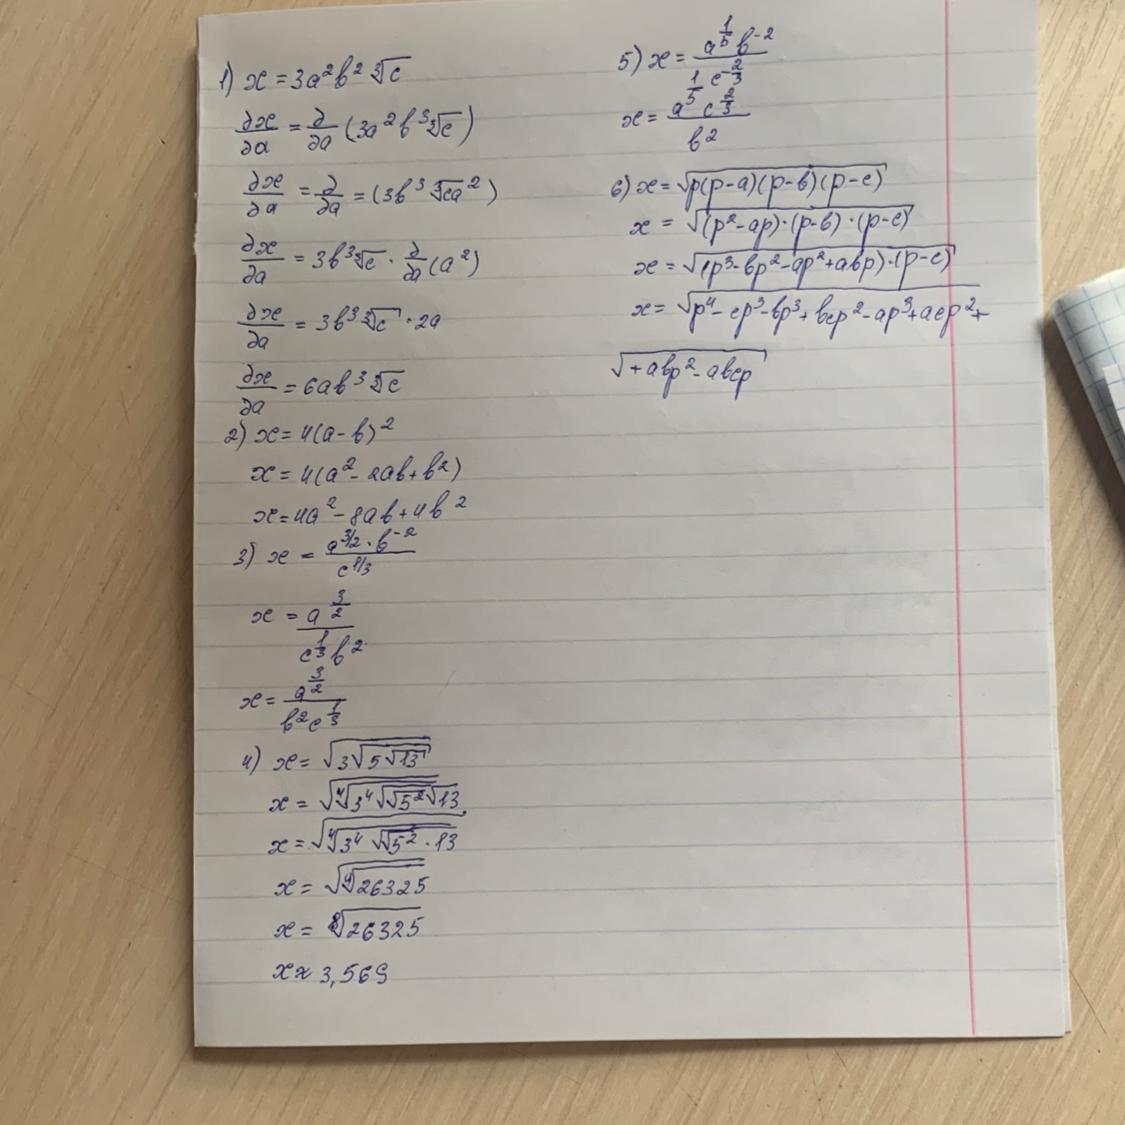 1) x = 3a²b² ∛c
∂x/∂a = ∂/∂a (3a²b³ ∛c)
∂x/∂a = ∂/∂a = (3b³ ∛ca²)
∂x/∂a = 3b³ ∛c · ∂/∂a (a²)
∂x/∂a = 3b³ ∛c · 2a
∂x/∂a = 6ab³ ∛c
2) x = 4(a-b)²
x = 4(a² - 2ab + b²)
x = 4a² - 8ab + 4b²
3) x = (a^(3/2) · b^(-2)) / c^(1/3)
x = a^(3/2) / (c^(1/3) b²)
x = a^(3/2) / (b² c^(1/3))
4) x = √(3√(5√13))
x = √(⁴√(3⁴ √(√5² √13)))
x = √(⁴√(3⁴ √(√5² · 13)))
x = √(⁴√26325)
x = ⁸√26325
x ≈ 3,569
5) x = (a^(1/5) b^(-2)) / c^(-2/3)
x = (a^(1/5) c^(2/3)) / b²
6) x = √(p(p-a)(p-b)(p-c))
x = √((p²-ap)·(p-b)·(p-c))
x = √((p³-bp²-ap²+abp)·(p-c))
x = √(p⁴-cp³-bp³+bcp²-ap³+acp²+
√(+abp²-abcp)